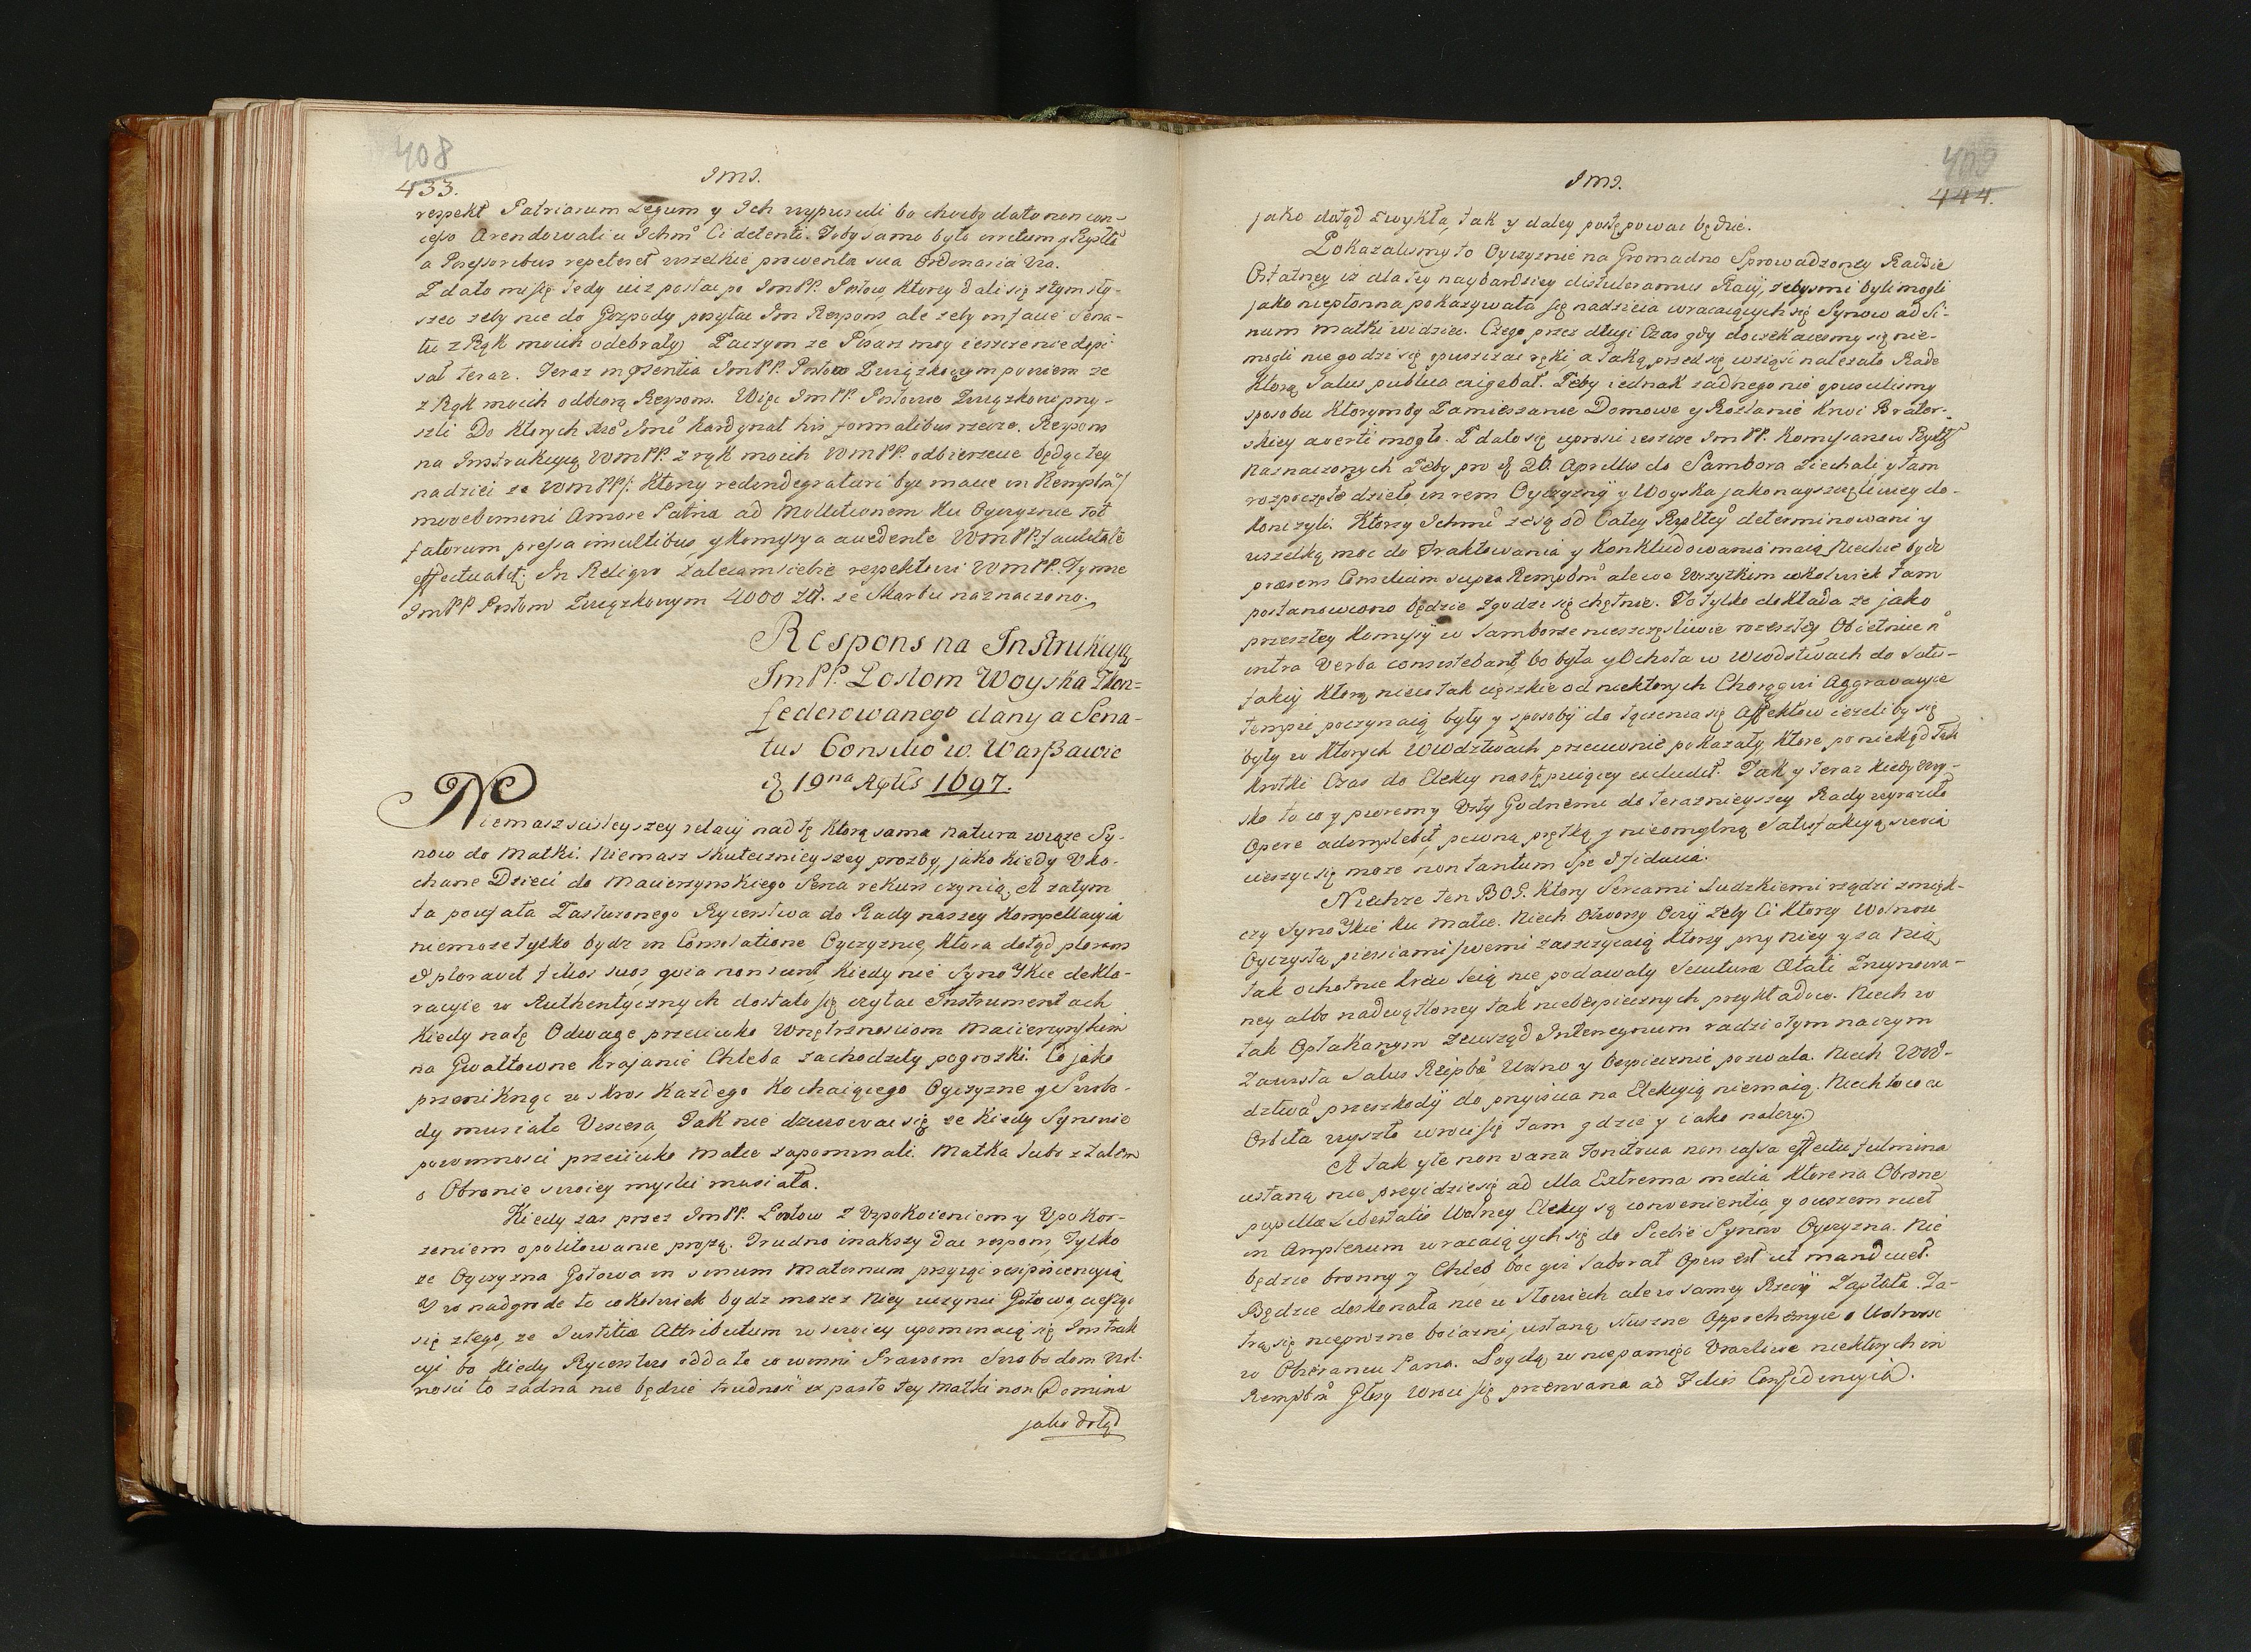 408
433.
JMJ.
respekt Patriarum Legum y Ich wypuscili bo chocby dato non con-
cesso Arendowali u Ichmˢ Ci detenti. Toby samo było irritum y Rzplta
a Possessoribus repeteret wszelkie prowenta sua Ordinaria Via.
Zdało mi się tedy iuż posłac po ImPP. Posłow, ktorzy dali się z tym sły-
szec zeby nie do Gospody posyłac Im Respons, ale zeby in facie Sena-
tu z Rąk moich odebrały. Zaczym ze Pisarz moy ieszcze nie dopi
sał teraz. Teraz in prsentia ImPP. Posłow Związkowym powiem ze
z Rąk moich odbiorą Respons. Więc ImPP. Posłowie Związkowi przy-
szli Do ktorych Xże Jmc Kardynał his formalibus rzecze. Respons
na Instrukcyą WmPP. z rąk moich WmPP. odbierzecie będąc tey
nadziei ze WmPP /: ktorzy redindegraturi byc macie in Remplm :/
movebimini Amore Patriæ ad Mollitionem ku Oyczyznie tot
fatorum pressa insultibus, y Komyssya accedente WmPP. facultate
effectuabit. In Reliquo Zalecam siebie respektowi WmPP. Tymze
ImPP Posłom Związkowym 4000 Zł. ze Skarbu naznaczono.
Respons na Instrukcyą
ImPP. Posłom Woyska Skon=
federowanego dany a Sena-
tus Consilio w. Warszawie
d 19na Aplis 1697.
Niemasz scisleyszey relacij nad tę ktorą sama natura wiąże Sy-
now do Matki. Niemasz skutecznieyszey prozby, jako kiedy Uko-
chane Dzieci do Macierzynskiego Serca rekurs czynią, A zatym
ta poufała Zasłuzonego Rycerstwa do Rady naszey Kompellacyia
niemoze tylko bydz in Consolatione Oyczyznie, ktora dotąd plorans
ploravit filios suos, quia non sunt, kiedy nie Synowskie dekla-
racyie w Authentycznych dostało się czytac Instrumentach
kiedy na tę Odwagę przeciwko Wnętrznosciom Macierzynskim
na Gwałtowne krajanie Chleba zachodziły pogrozki. Co jako
przeniknąc wskros kazdego kochaiącego Oyczyznę y Swobo-
dy musiało Uniesą, Tak nie dziwowac się ze kiedy Synowie
powinnosci przeciwko Matce zapominali. Matka lubo z zalem
o Obronie swoiey myslic musiała.
Kiedy zas przez ImPP. Posłow z Uspokoieniem y Upokor-
zeniem o politowanie proszą. Trudno inakszy dac respons, Tylko
ze Oyczyzna Gotowa in sinum Maternum przyiąc resipiscencyią
Y w nadgrodę to cokolwiek bydz moze z Niey uczynic Gotowa, ciesząc
się z tego, ze Justitiæ Attributum w swoiey upominaią się Instruk
cyi bo kiedy Rycerstwo odda to co winni Prawom Swobodom Wol-
nosci to zadna nie będzie trudnosc ex parte tey Matki non Domina
jako dotąd
409
444.
JMJ.
jako dotąd zwykła, tak y daley postępowac będzie.
Pokazalismy to Oyczyznie na Gromadno Sprowadzoney Radzie
Ostatney iz dla tey naybardziey distuleramus Racij, zebysmi byli mogli
jako niepłonna pokazywała się nadzieia wracaiących się Synow ad Si-
num Matki widziec. Czego przez długi Czas gdy doczekac esmy się nie-
mogli nie godzi się opuszczac ręki, a taką przed się wziąsc nalezało Radę
ktorą Salus publica exigebat. Zeby iednak zadnego nie opuscilismy
sposobu ktorymby Zamieszanie Domowe y Rozlanie krwi Brater-
skiey averti mogło. Zdało się uprosic ieszcze ImPP. Komysarzow Rzpltey
Naznaczonych Zeby pro d 26. Aprilis do Sambora Ziechali y tam
rozpoczęte dzieło, in rem Oyczyzny y Woyska jako nayszczęsliwiey do-
konczyli. Ktorzy Ichmc ze są od Całey Rzpltey determinowani y
wszelką moc do Traktowania y Konkludowania maią, Niechce bydz
præsens Consilium supra Rempbm ale we Wszytkim cokolwiek tam
postanowiono będzie zgodzi się chętnie. To tylko dokłada ze jako
przeszłey Komyssij w Samborze nieszczęsliwie rozeszłey Obietnice n
intra Verba consistebant, bo była y Ochota w Wiodstwach do Satis-
fakcij ktorą nieco tak cięszkie od niektorych Chorągwi Aggrawacyie
tempore poczynaią były y sposoby do łączenia się Affektow iezeli by się
były w ktorych WWdztwach przeciwnie pokazały, ktore poniekąd tak
krotki Czas do Elekcy następuiący excludit. Tak y teraz kiedy Woy-
sko to co y piorem y Usty Godnemi do teraznieyszey Rady wyraziło
Opere adimplebit, pewną, prętką, y nieomylną Satysfakcyą sweia
cieszyc się moze non tantum Spe & fiducia.
Niechze ten BOG. ktory Sercami Ludzkiemi rządzi zmięk-
czy Synowskie ku Matce. Niech Otworzy Oczy zeby Ci ktorzy Wolnosc
Oyczystą piersiami swemi zaszczycaią ktorzy przy Niey y za Nią
tak ochotnie krew leią nie podawały Secuturæ Ætati Zruynowa-
ney albo nadwątloney tak niebespiecznych przykładow. Niech w
tak Opłakanym zewsząd Interregnum radzi o tym na czym
Zawisła Salus Reipbæ Wolno y bezpiecznie pozwala. Niech WW-
dztwa przeszkody do przyiscia na Elekcyią niemaią. Niech to co ex
Orbita wyszło wroci się tam gdzie y iako nalezy.
A tak y te non vana Tonitrua non cassa effectu fulmina
ustaną nie przyidzie się ad illa Extrema media ktore na Obronę
pupillæ Libertatis Wolney Elekcy są convenientia, y owszem ruet
in Amplexum wracaiących się do Siebie Synow Oyczyzna. Nie
będzie bronny y Chleb boc qui laborat Opus est ut manducet.
Będzie doskonała nie w słowiech ale w samey Rzeczy Zapłata. Za-
trą się nieprozne boiazni, ustaną słuszne Apprehensyie o Wolnosc
w Obieraniu Pana. Poydą w niepamięc Urazliwe niektorych in
Rempbm Głosy, wroci się przerwana ad Filios Confidencyia.